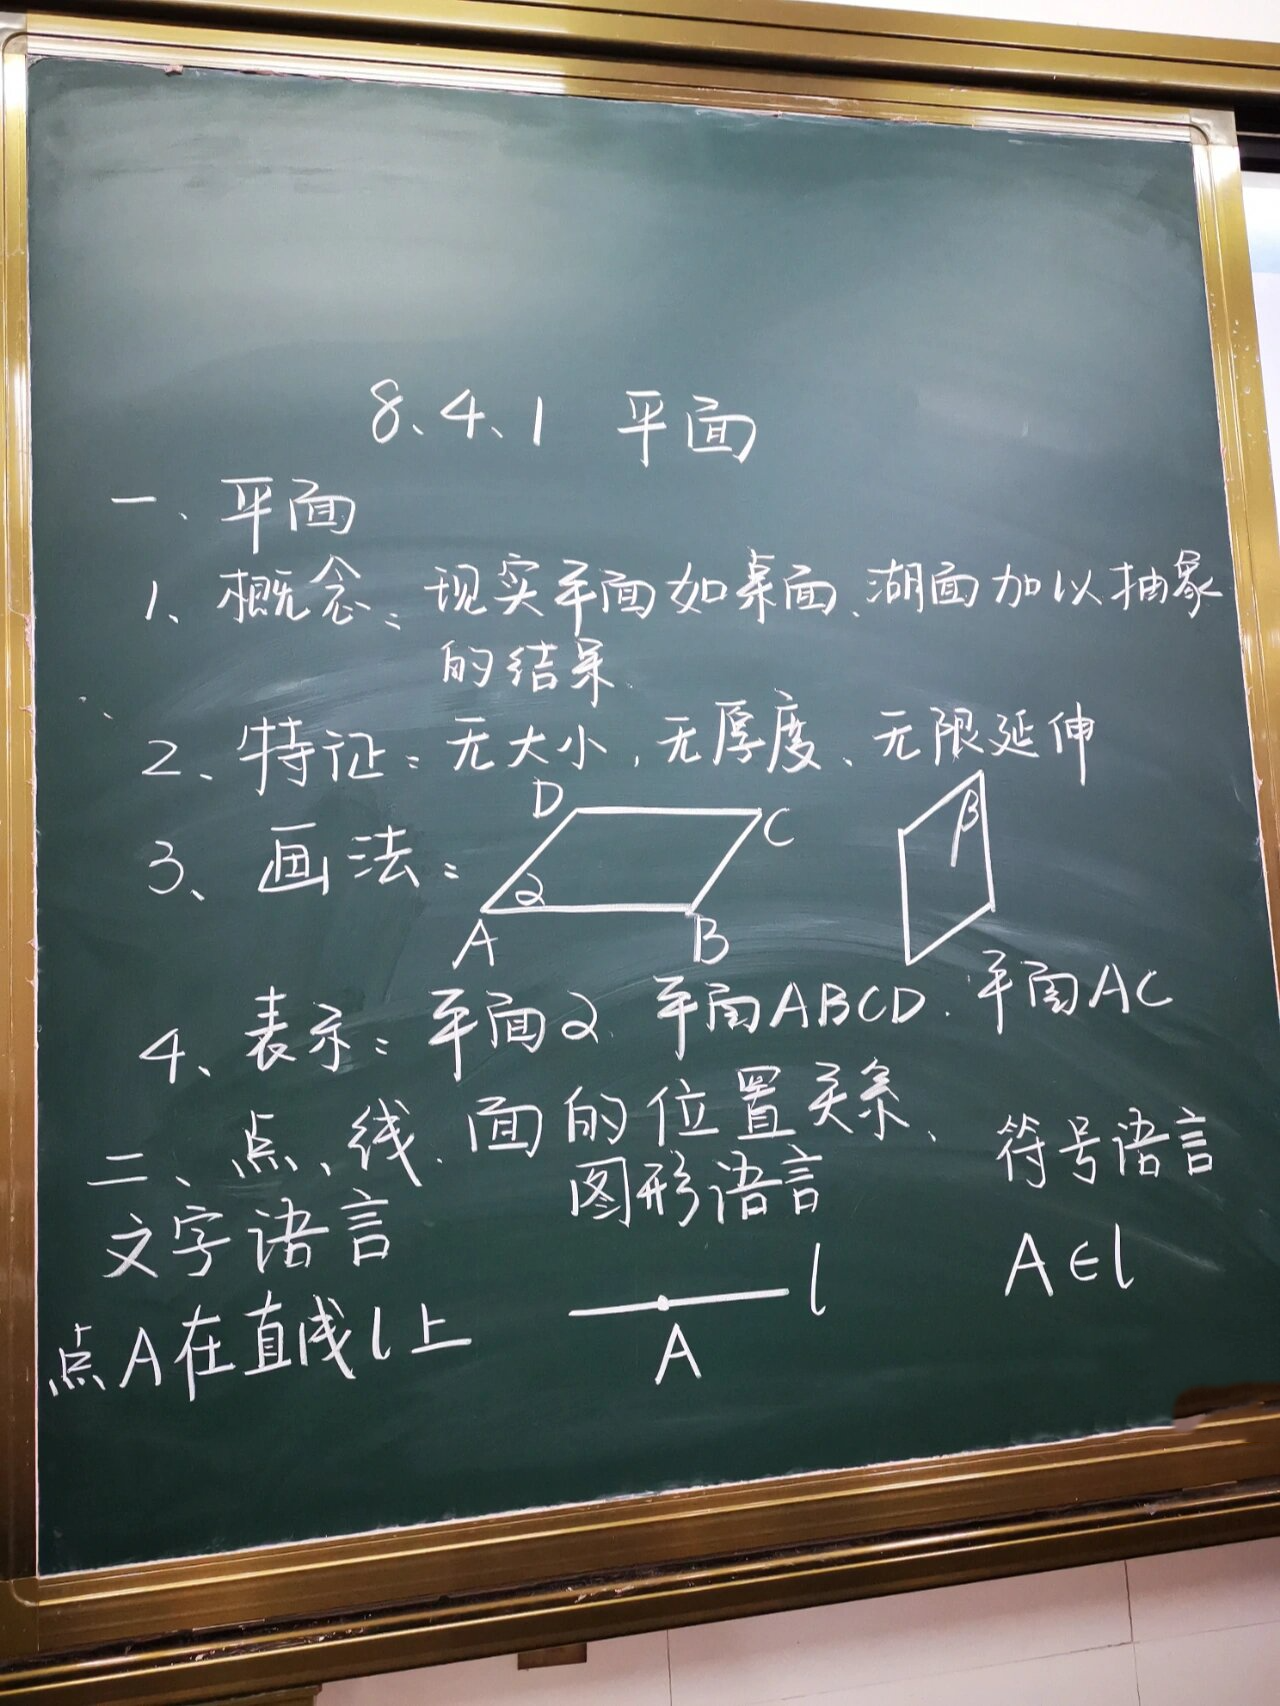 8、4、1 平面
一、平面
1、概念：现实平面如桌面、湖面加以抽象
的结果.
2、特征：无大小，无厚度、无限延伸
3、画法：
D
C
α
A
B
β
4、表示：平面α、平面ABCD、平面AC
二、点、线、面的位置关系、
文字语言 图形语言 符号语言
点A在直线l上
A
l
A∈l